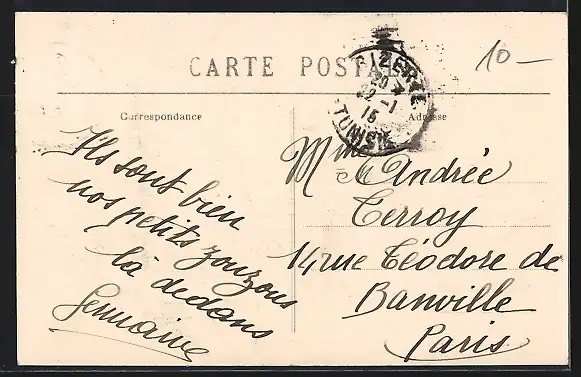 CARTE POSTALE
10-
BIZERTE
20 *
22 -1
15
TUNISIE
Correspondance
Adresse
Ils sont bien
nos petits zouzous
là dedans
Germaine
Mme Andrée
Terroy
14 rue Téodore de
Banville
Paris